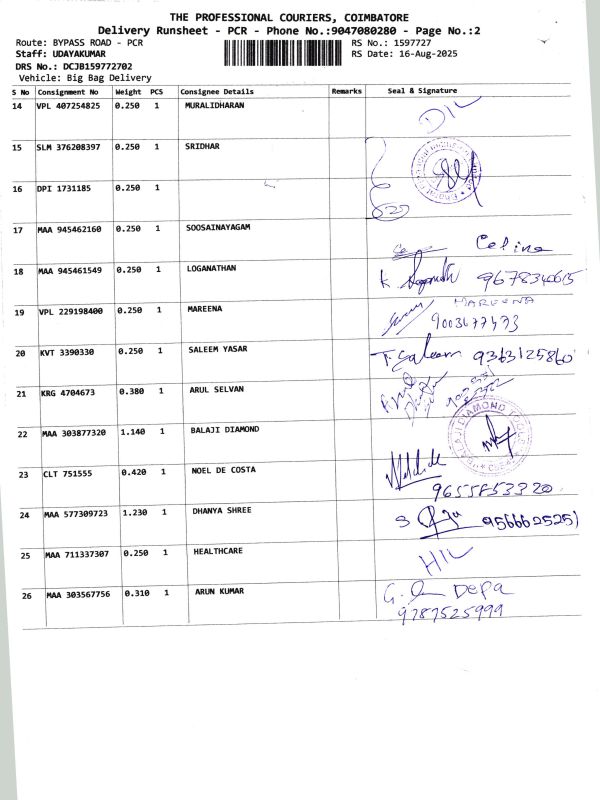 THE PROFESSIONAL COURIERS, COIMBATORE
Delivery Runsheet - PCR - Phone No.:9047080280 - Page No.:2
Route: BYPASS ROAD - PCR RS No.: 1597727
Staff: UDAYAKUMAR RS Date: 16-Aug-2025
DRS No.: DCJB159772702
Vehicle: Big Bag Delivery
S No Consignment No Weight PCS Consignee Details Remarks Seal & Signature
14 VPL 407254825 0.250 1 MURALIDHARAN
15 SLM 376208397 0.250 1 SRIDHAR
16 DPI 1731185 0.250 1
17 MAA 945462160 0.250 1 SOOSAINAYAGAM Celina
18 MAA 945461549 0.250 1 LOGANATHAN K 9678340615
19 VPL 229198400 0.250 1 MAREENA MAREENA
20 KVT 3390330 0.250 1 SALEEM YASAR T. Saleem 9363125860
21 KRG 4704673 0.380 1 ARUL SELVAN
22 MAA 303877320 1.140 1 BALAJI DIAMOND
23 CLT 751555 0.420 1 NOEL DE COSTA 9655853320
24 MAA 577309723 1.230 1 DHANYA SHREE 9566625251
25 MAA 711337307 0.250 1 HEALTHCARE
26 MAA 303567756 0.310 1 ARUN KUMAR G. Depa
9787525999